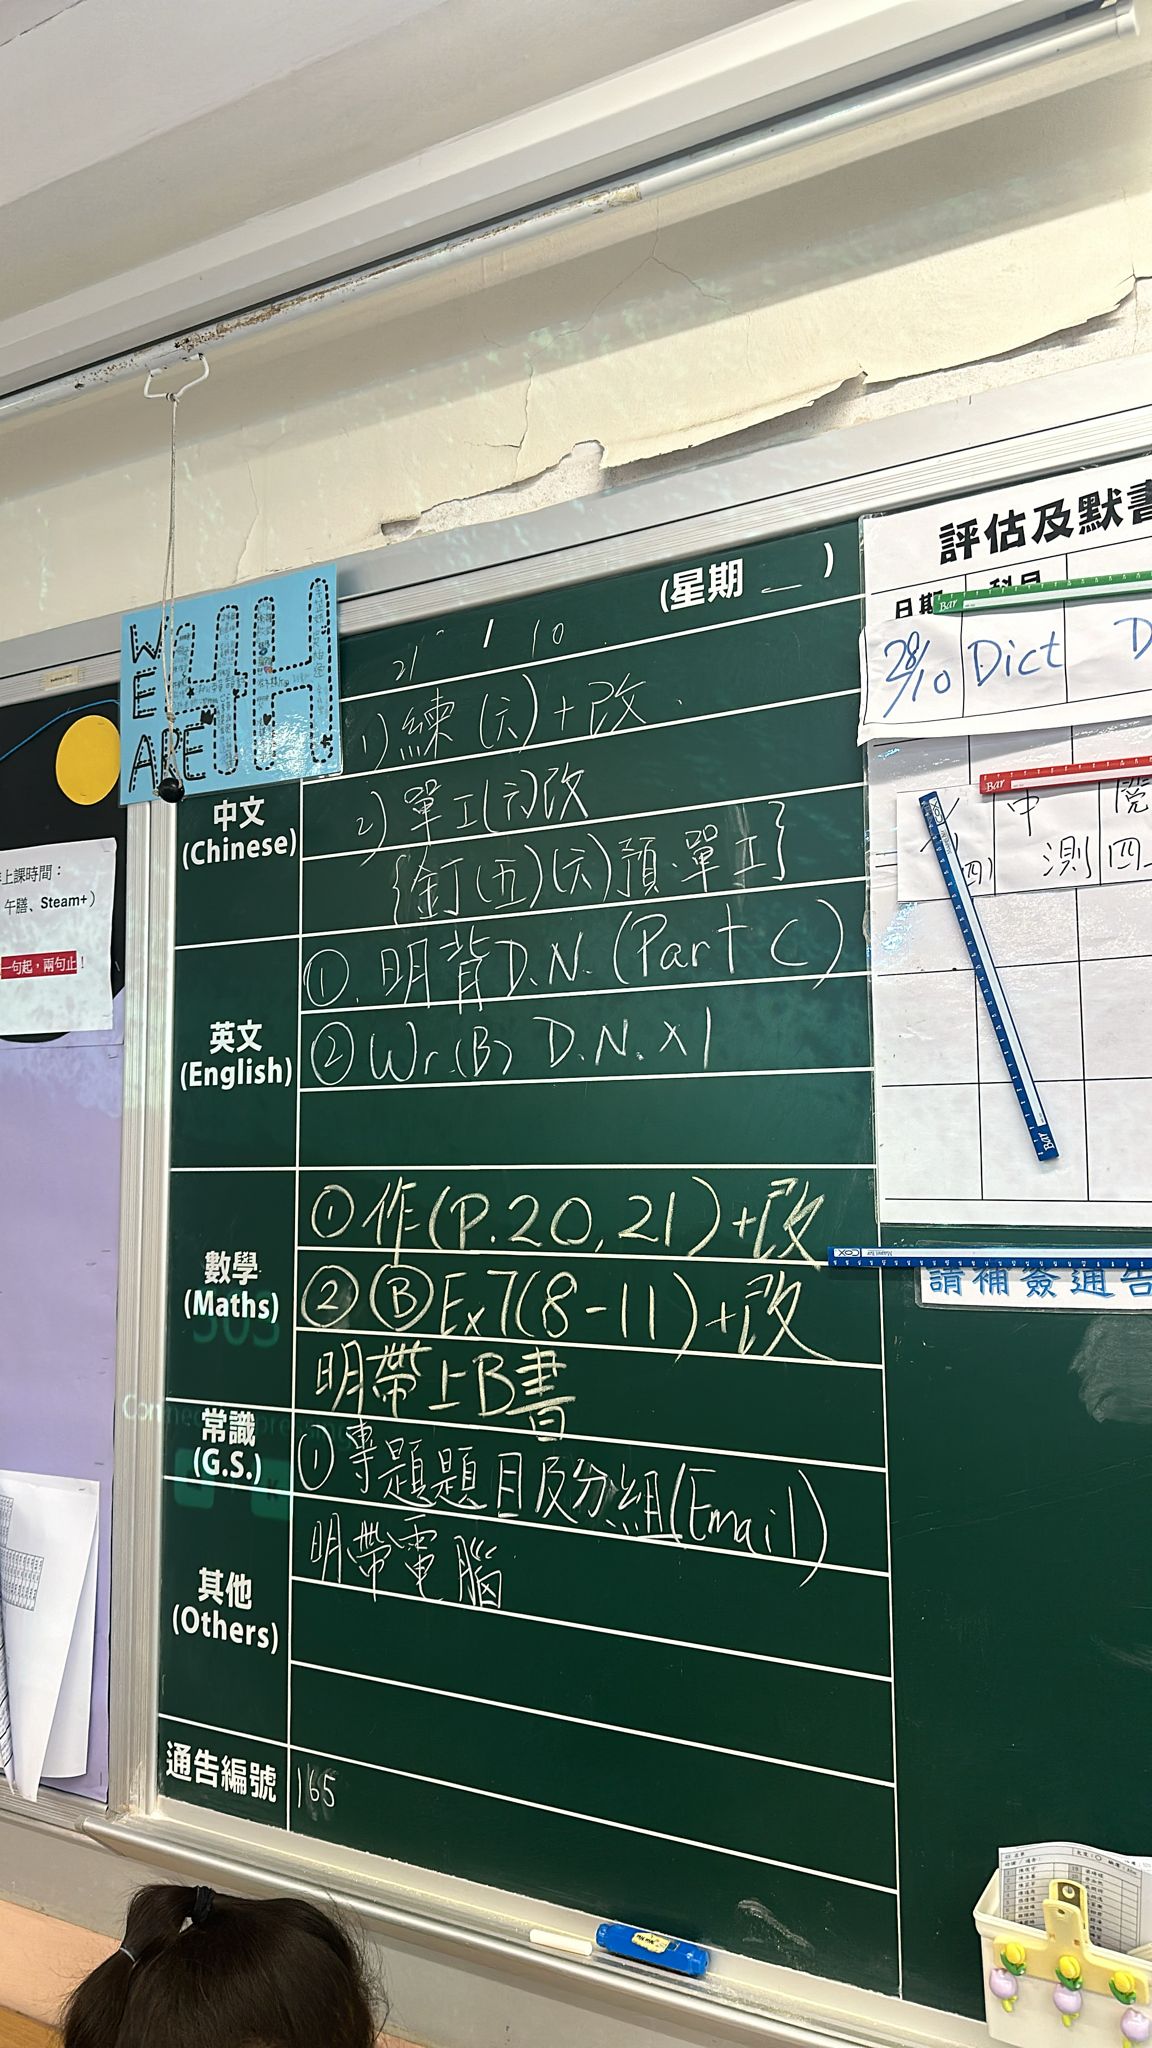 WE ARE
(星期 二 )
21 / 10
1) 練(六)+改
2) 單工(六)改
{釘(五)(六)預單工}
中文
(Chinese)
①. 明背D.N.(Part C)
② Wr.(B) D.N.x1
英文
(English)
①作(P.20,21)+改
②ⒷEx7(8-11)+改
明帶上B書
數學
(Maths)
常識
(G.S.)
①專題題目及分組(Email)
明帶電腦
其他
(Others)
通告編號
165
評估及默書
日期
科目
28/10
Dict
中
測
四
請補簽通告
上課時間：
午膳、Steam+)
一句起，兩句止！
Bar
Bar
COX
Bar
COX